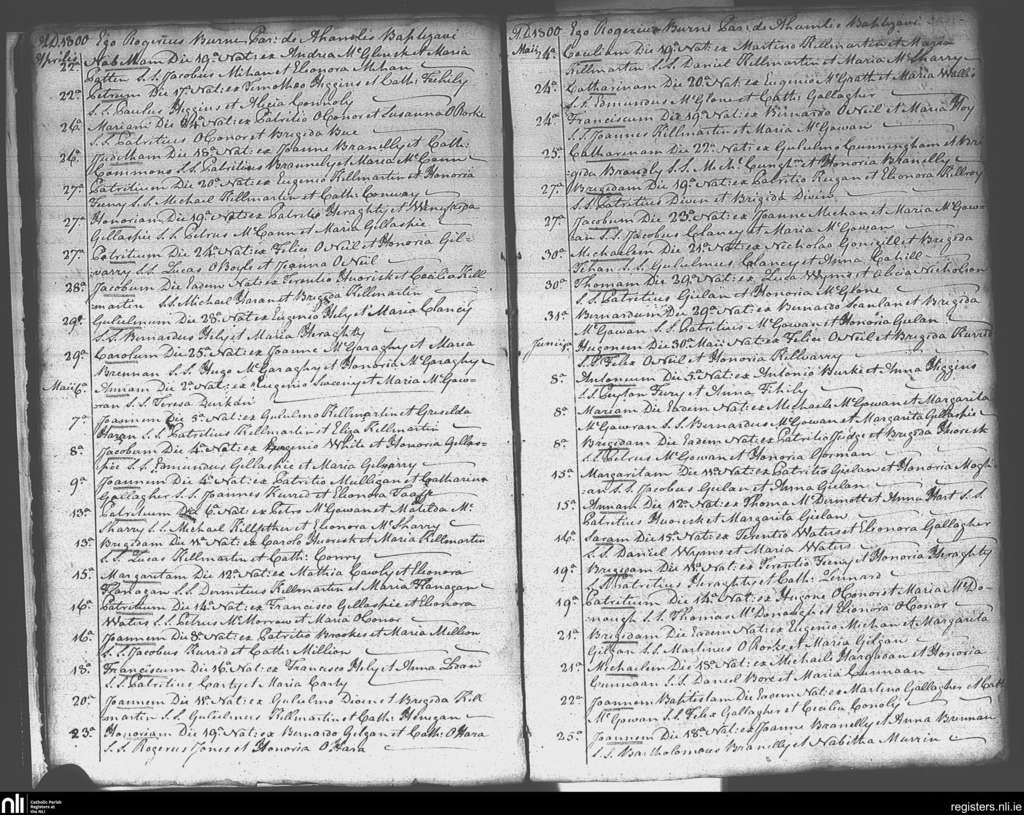 A.D. 1800 Ego Rogerius Burne Par: de Ahamlis Baptizavi
Aprilis
22a. Die 19a. Nat: ex Andrea McGlinck et Maria
S.S. Jacobus Mihan et Elionora Mihan
22a. Petrum Die 17a. Nat: ex Timotheo Higgins et Cath: Fehily
S.S. Paulus Higgins et Alicia Connoly
26a. Mariam Die 24a. Nat: ex Patritio OConor et Susanna ORorke
S.S. Patritius OConor et Brigida
26a. Juditham Die 18a. Nat: ex Joanne Branelly et Cath:
Commons S.S. Patritius Brannely et Maria McCann
27a. Patritium Die 20a. Nat: ex Eugenio Killmartin et Honoria
Feeny S.S. Michael Killmartin et Cath: Conway
27a. Honoriam Die 19a. Nat: ex Patritio Heraghty et
Gillaspie S.S. Petrus McCann et Maria Gillaspie
27a. Patritium Die 24a. Nat: ex Felix ONeil et Honoria Gil-
varry S.S. Lucas OBoyle et Joanna ONeil
28a. Jacobum Die Eadem Nat: ex Terentio Huorisk et Coecilia Kill
martin S.S. Michael Haran et Brigida Killmartin
29a. Gulielmum Die 28a. Nat: ex Eugenio Hely et Maria Clancy
S.S. Bernardus Hely et Maria Heraghty
29a. Carolum Die 25a. Nat: ex Joanne McGaraghy et Maria
Brennan S.S. Hugo McGaraghy et Honoria McGaraghy
Maii 6a. Annam Die 2a. Nat: ex Eugenio Sweeny et Maria McGow-
ran S.S. Teresa Durkan
7a. Joannem Die 5a. Nat: ex Gulielmo Killmartin et Griselda
Haran S.S. Patritius Killmartin et Eliza Killmartin
8a. Jacobum Die 4a. Nat: ex Eugenio White et Honoria Gillas-
pie S.S. Edmundus Gillaspie et Maria Gilvarry
9a. Joannem Die 4a. Nat: ex Patritio Mulligan et Catharina
Gallagher S.S. Joannes Kurred et Elionora Taaffe
13a. Patritium Die 6a. Nat: ex Petro McGowan et Matilda Mc
Sharry S.S. Michael Killfether et Elionora McSharry
13a. Brigidam Die 11a. Nat: ex Carolo Huorisk et Maria Killmartin
S.S. Lucas Killmartin et Cath: Conry
15a. Margaritam Die 12a. Nat: ex Mathia Cawly et Elionora
Flanagan S.S. Dermitius Killmartin et Maria Flanagan
16a. Patritium Die 14a. Nat: ex Francisco Gillaspie et Elionora
Waters S.S. Petrus McMorrow et Maria OConor
16a. Joannem Die 8a. Nat: ex Patritio Brookes et Maria Million
S.S. Jacobus Kurrid et Cath: Million
18a. Franciscum Die 16a. Nat: ex Francisco Hely et Anna
S.S. Patritius Carty et Maria Carty
20a. Joannem Die 11a. Nat: ex Gulielmo Diven et Brigida Kill
martin S.S. Gulielmus Killmartin et Cath: Honegan
23a. Honoriam Die 19a. Nat: ex Bernardo Gilgan et Cath: OHara
S.S. Rogerus Jones et Honoria OHara
A.D. 1800 Ego Rogericus Burne Par: de Ahamlis Baptizavi
Maii 24a. Die 19a. Nat: ex Martino Killmartin et Maria
Killmartin S.S. Daniel Killmartin et Maria McSharry
24a. Catharinam Die 20a. Nat: ex Eugenio McGrath et Maria Wallis
S.S. Edmundus McGlone et Cath: Gallagher
24a. Franciscum Die 19a. Nat: ex Bernardo ONeil et Maria Hoy
S.S. Joannes Killmartin et Maria McGowan
25a. Catharinam Die 22a. Nat: ex Gulielmo Cunningham et Bri
gida Branely S.S. et Honoria Branelly
27a. Brigidam Die 19a. Nat: ex Patritio Regan et Elionora Killroy
S.S. Patritius Diven et Brigida Diven
27a. Jacobum Die 23a. Nat: ex Joanne Michan et Maria McGow
ran S.S. Jacobus Clancy et Maria McGowan
30a. Michaelem Die 21a. Nat: ex Nicholao et Brigida
S.S. Gulielmus Clancy et Anna Cahill
30a. Thomam Die 29a. Nat: ex Luca Wyns et Alicia Nicholson
S.S. Patritius Gielan et Honoria McGlone
31a. Bernardum Die 29a. Nat: ex Bernardo Scanlan et Brigida
McGowan S.S. Patritius McGowan et Honoria Gielan
Junii Hugonem Die 30a. Maii Nat: ex Felix ONeil et Brigida Kurrid
S.S. Felix ONeil et Honoria Killvarry
8a. Antonium Die 5a. Nat: ex Antonio Burke et Anna Higgins
S.S. Peyton Fury et Anna Fehily
8a. Mariam Die Eadem Nat: ex Michaele McGowan et Margarita
McGawran S.S. Bernardus McGowan et Margarita Gillaspie
8a. Brigidam Die Eadem Nat: ex Patritio Judge et Brigida Huorisk
S.S. Petrus McGowan et Honoria Gorman
13a. Margaritam Die 11a. Nat: ex Patritio Gielan et Honoria Magh-
ran S.S. Jacobus Gielan et Anna Gielan
15a. Annam Die 12a. Nat: ex Thoma McDermott et Anna Hart S.S.
Patritius Huorisk et Margarita Gielan
16a. Saram Die 15a. Nat: ex Terentio Waters et Elionora Gallagher
S.S. Daniel Wyns et Maria Waters
19a. Brigidam Die 14a. Nat: ex Terentio Feeny et Honoria Heraghty
S.S. Patritius Heraghty et Cath: Linnard
19a. Patritium Die 14a. Nat: ex Hugone OConor et Maria McDo-
nough S.S. Thomas McDonough et Elionora OConor
21a. Brigidam Die Eadem Nat: ex Eugenio Michan et Margarita
Gilgan S.S. Martinus ORorke et Maria Gilgan
21a. Michaelem Die 18a. Nat: ex Michaele Hargadan et Honoria
Gunnaan S.S. Daniel Bore et Maria Gunnaan
22a. Joannem Baptistam Die Eadem Nat: ex Martino Gallagher et Cath:
McGowan S.S. Felix Gallagher et Cecilia Conoly
25a. Joannem Die 18a. Nat: ex Joanne Branelly et Anna Brennan
S.S. Bartholomaus Branelly et Nabitha Murrin
nli Catholic Parish
Registers at
the NLI
registers.nli.ie